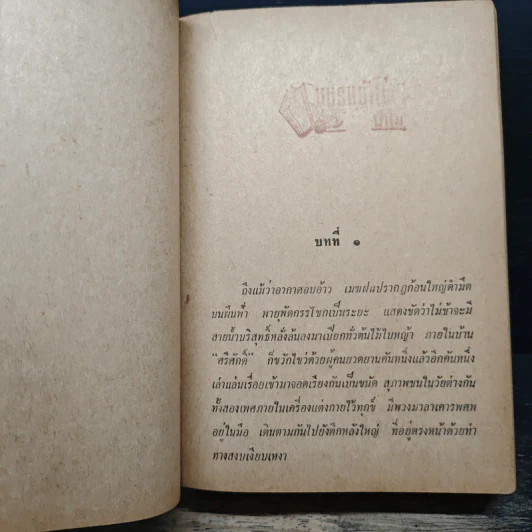 บทที่ ๑
ถึงแม้ว่าอากาศอบอ้าว เมฆฝนปรากฏก้อนใหญ่ดำมืด
บนผืนฟ้า พายุพัดกรรโชกเป็นระยะ แสดงชัดว่าไม่ช้าจะมี
สายน้ำบริสุทธิ์หลั่งล้นลงมาเปียกทั่วต้นไม้ใบหญ้า ภายในบ้าน
“ศรีศักดิ์” ก็ขวักไขว่ด้วยผู้คนยวดยานคันหนึ่งแล้วอีกคันหนึ่ง
เล่าแล่นเรื่อยเข้ามาจอดเรียงกันเป็นขนัด สุภาพชนในวัยต่างกัน
ทั้งสองเพศภายในเครื่องแต่งกายไว้ทุกข์ มีพวงมาลาเคารพศพ
อยู่ในมือ เดินตามกันไปยังตึกหลังใหญ่ ที่อยู่ตรงหน้าด้วยท่า
ทางสงบเงียบเหงา